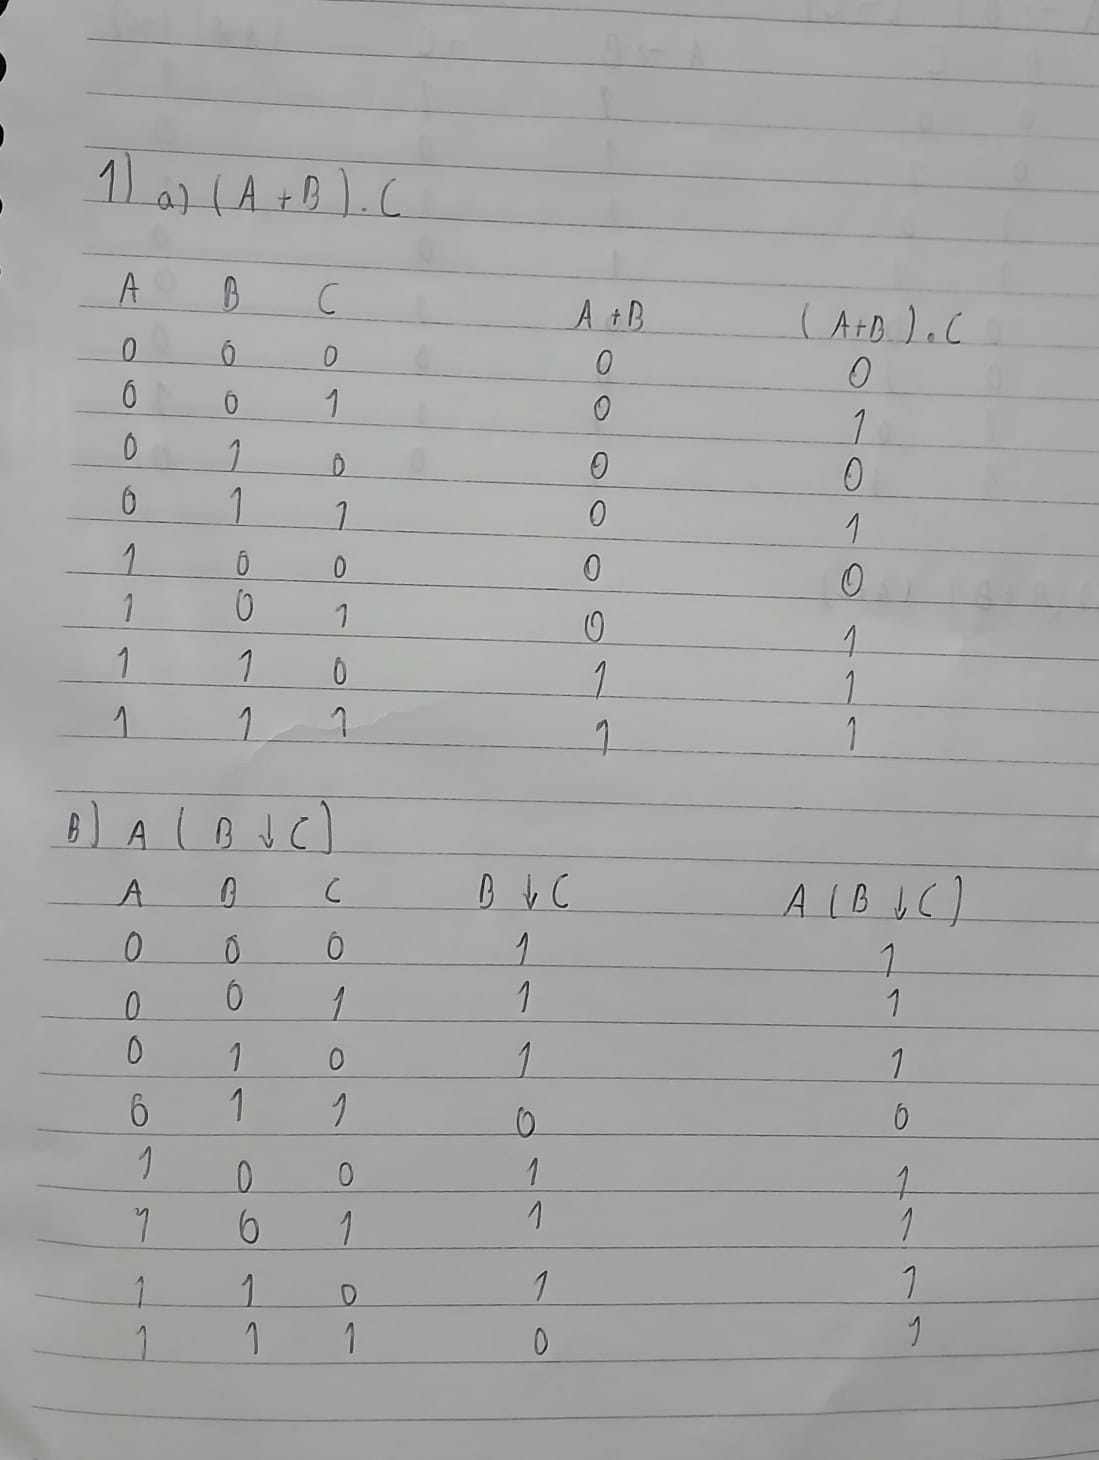 1) a) (A + B) . C
A B C A + B (A+B) . C
0 0 0 0 0
0 0 1 0 1
0 1 0 0 0
0 1 1 0 1
1 0 0 0 0
1 0 1 0 1
1 1 0 1 1
1 1 1 1 1
B) A (B ↓ C)
A B C B ↓ C A (B ↓ C)
0 0 0 1 1
0 0 1 1 1
0 1 0 1 1
0 1 1 0 0
1 0 0 1 1
1 0 1 1 1
1 1 0 1 1
1 1 1 0 1